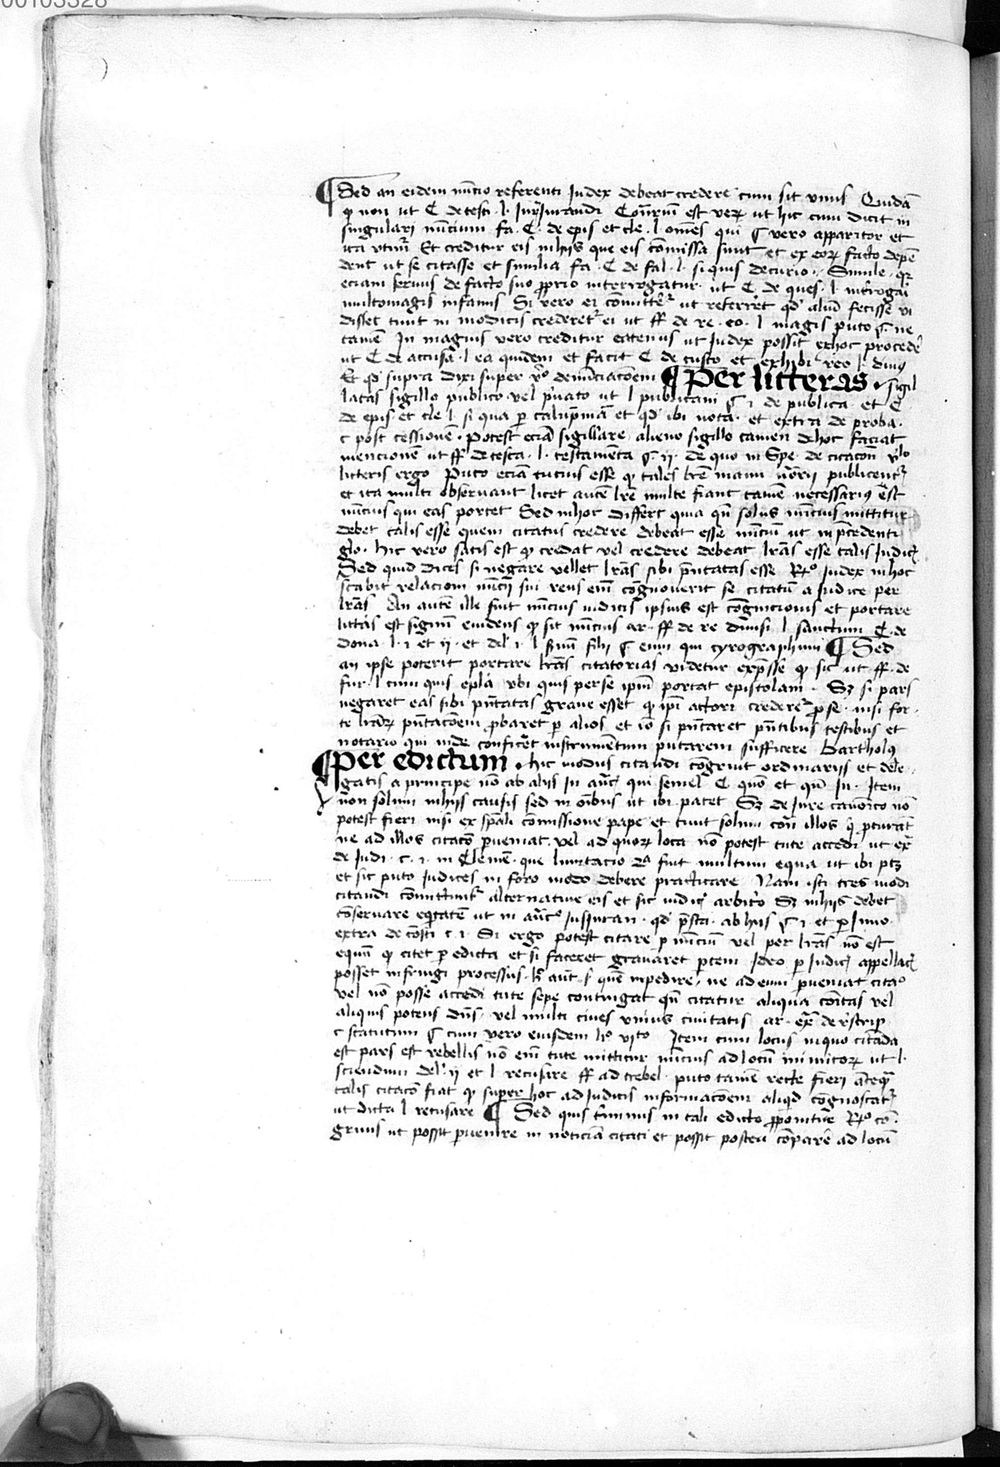 00103328
¶ Sed an eidem nūcio referenti Judex debeat credere cum sit vnus Quidā
ꝙ non ut C de testi l Iurisiurandi Contrariū est verū ut hic cum dicit in
singulari nūcium fa C de epis et cle l omēs qui ¶ vero apparitor et
Et creditur eis in hijs que eis cōmissa sunt et ex eorū facto depē
dent ut se citasse et similia fa C de fal l si quis decurio Simile
eciam seruus de facto suo proprio interrogatur ut C de ques l
multomagis infamis Si vero ei ut referret qd aliud fecisse vi
disset tunc in modicis crederetur ei ut ff de re eo l magis puto ¶ ne
tamē In magnis vero creditur eatenus ut Judex possit ex hoc procedere
ut C de accusa l ea quidem et facit C de custo et exhibi reo l
Et qd supra dixi super denūciacōem ¶ Per litteras Sigil
latas sigillo publico vel pīuato ut l publicani ¶ 1 de publica et C
de epis et cle l si qua per calūpniā et qd ibi nota et extra de proba
c post cessionē Potest eciā sigillare alieno sigillo tamen de hoc faciat
mencionē ut ff de testa l testamēta ¶ ii De quo in Spe de citacōn
litteris ergo Puto eciam tucius esse ꝙ tales lrē manu publicentur
et ita multi obseruant licet autē lrē multe fiant tamē necessarius est
nūcius qui eas portet Sed in hoc differt quia qn̄ solus nūcius mittitur
debet talis esse quem citatus credere debeat esse nūciū ut in pcedenti
glo hic vero satis est ꝙ credat vel credere debeat lrās esse talis Judicis
Sed quid dices si negare vellet lrās sibi pn̄tatas esse Rº Judex in hoc
stabit relacioni nūcij sui reus enī cognouerit se citatū a Judice per
lrās An autē ille fuit nūcius iudicis ipsius est cognicionis et portare
littās est signū euidens ꝙ sit nūcius ar ff de re diuisi l sanctum C de
dona l 1 et ii et de l 1 filij ¶ eum qui cyrographum ¶ Sed
an ipse poterit portare lrās citatorias videtur expsse ꝙ sic ut ff de
fur l cum quis epla vbi quis per se ipm portat epistolam Sz si pars
negaret eas sibi pn̄tatas graue esset ꝙ ipi actori crederetur pro se nisi for
te pn̄tacōem probaret p alios et iō si pn̄taret pn̄tibus testibus et
notario qui inde conficeret instrumentum putarem sufficere Bartholus
¶ Per edictum hic modus citandi congruit ordinarijs et dele
gatis a principe nō ab alijs In auct qui semel C quō et qn̄ Iu Item
non solum in hijs causis sed in oībus ut ibi patet Sz de Jure canōico nō
potest fieri nisi ex spāli cōmissione pape et tunc solum cont illos q pcurāt
ne ad illos citacō pueniat vel ad quorū loca nō potest tute accedi ut ex
de Judi c 1 in Clemē que limitacio fuit multum equa ut ibi
et sic puto Judices in foro debere practicare Nam isti tres modi
citandi alternatiue eis et sic iudicis arbitrio Sz in hijs debet
cōseruare eqtatē ut in auct Jusiuran qd psta ab hijs ¶ 1 et p Inno
extra de cōsti c 1 Si ergo potest citare p nūciū vel per lrās nō est
equū ꝙ citet p edicta et si faceret grauaret ptem Ideo p Judicis appellacō
posset infringi processus impedire ne ad eum pueniat citacō
vel nō posse accedi tute sepe contingat qn̄ citatur aliqua cōitas vel
aliquis potens dn̄s vel multi ciues vnius ciuitatis ar ex de rescrip
c statutum ¶ cum vero eiusdem Item cum locus in quo citāda
est pars est rebellis nō enī tute mittitur nūcius ad locū inimicorū ut l
sciendum de l ii et l recusare ff ad trebel puto tamē recte fieri
talis citacō fiat ꝙ super hoc ad Judicis informacōem aliqd cognoscatur
ut dicta l recusare ¶ Sed quis tīminus in tali edicto pponitur Rº cō
gruus ut possit puenire in noticiā citati et possit postea cōparē ad locū